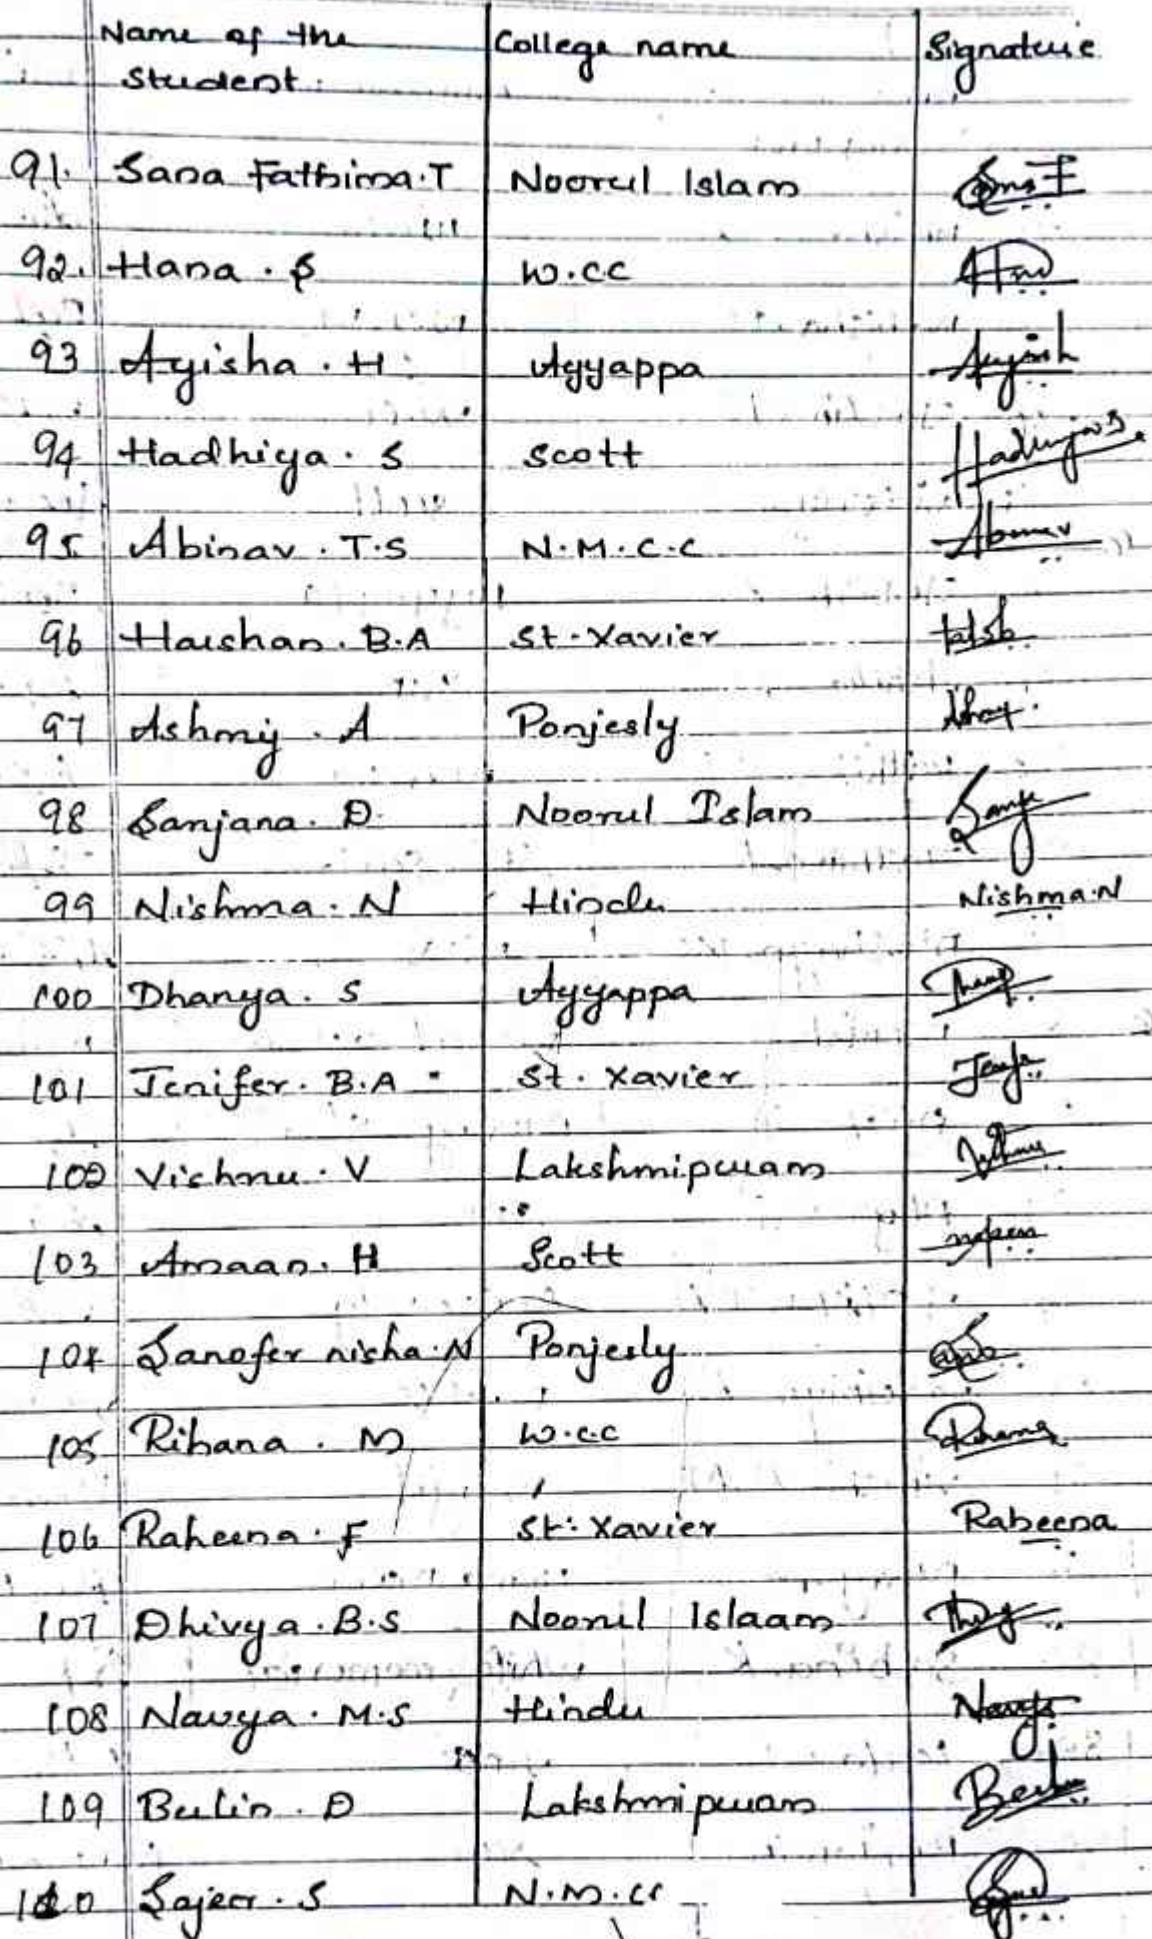 Name of the Student. College name Signature
91. Sana Fathima.T Noorul Islam
92. Hana . S W.CC
93 Ayisha . H Ayyappa Ayish
94 Hadhiya . S Scott Hadhiya S
95 Abinav . T.S N.M.C.C Abinav
96 Harshan . B.A St. Xavier
97 Ashmy . A Ponjesly
98 Sanjana . D. Noorul Islam
99 Nishma . N Hindu Nishma.N
100 Dhanya . S Ayyappa
101 Jenifer . B.A St. Xavier
102 Vishnu . V Lakshmipuram
103 Amaan . H Scott
104 Sanofer nisha . N Ponjesly
105 Rihana . M W.C.C
106 Raheena . F St. Xavier Raheena
107 Dhivya . B.S Noorul Islaam
108 Navya . M.S Hindu Navya
109 Berlin . D Lakshmipuram
110 Sajeer . S N.M.CC